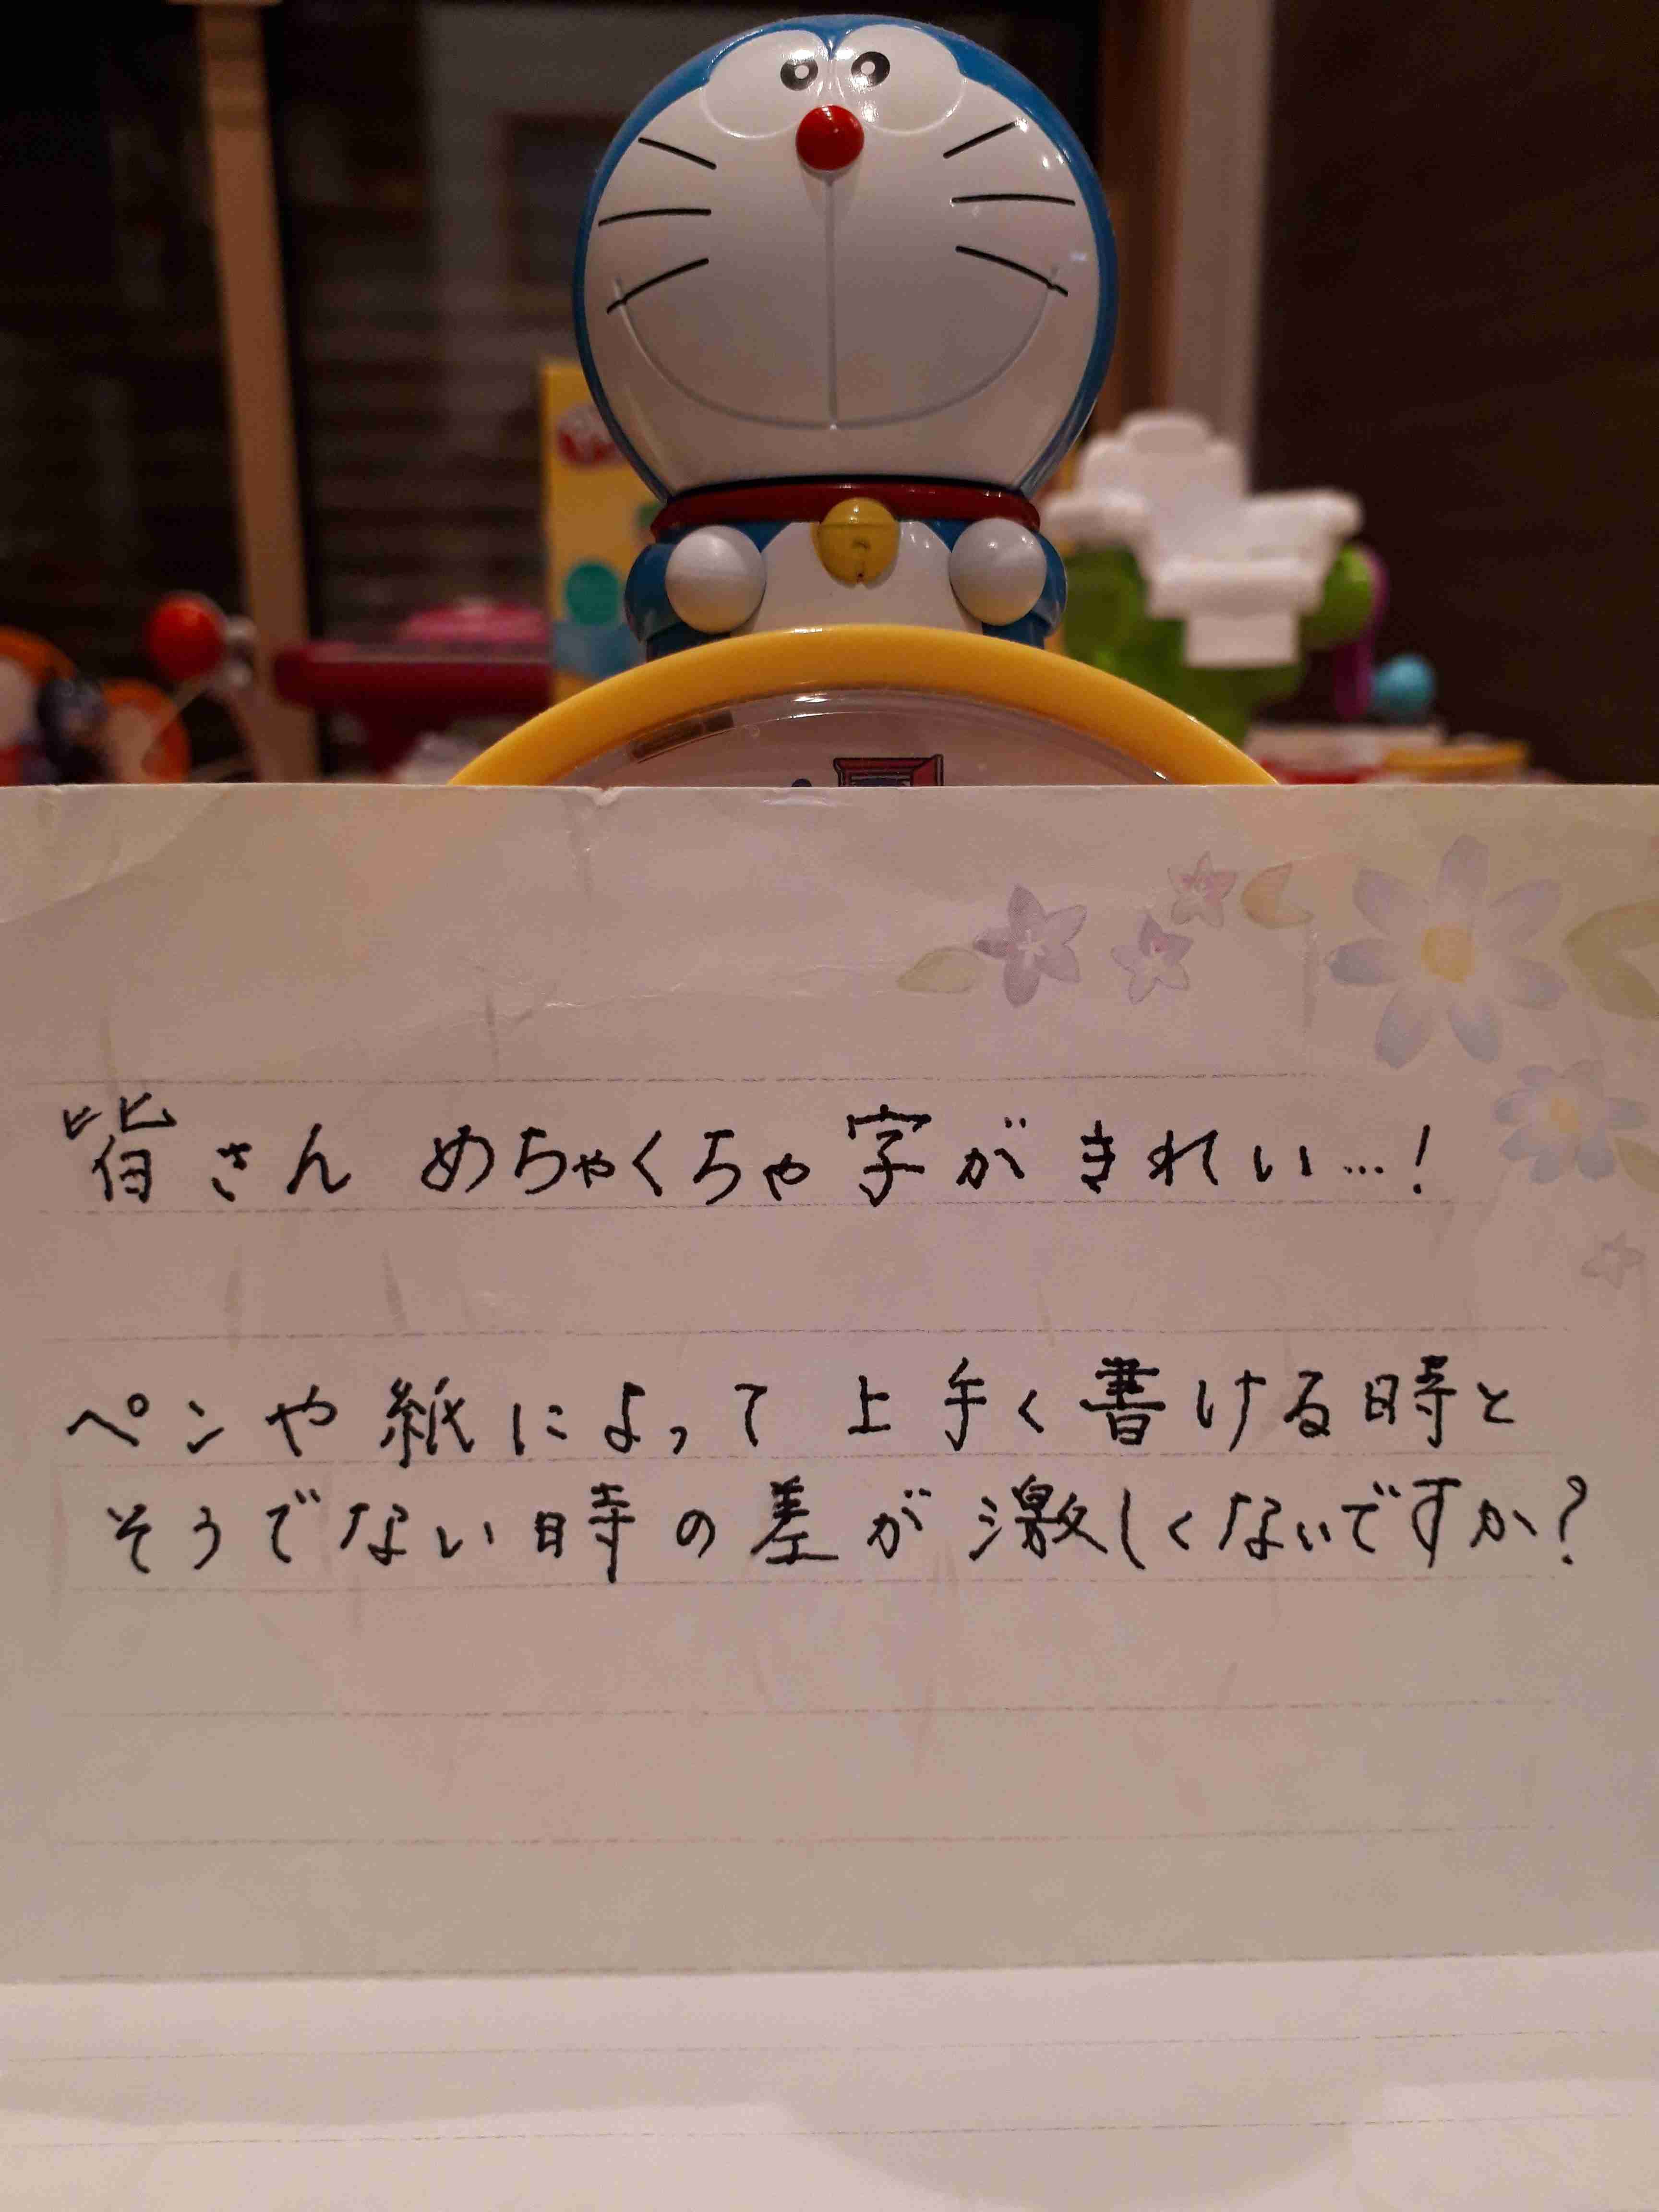 皆さん めちゃくちゃ字がきれい…!
ペンや紙によって上手く書ける時と
そうでない時の差が激しくないですか?